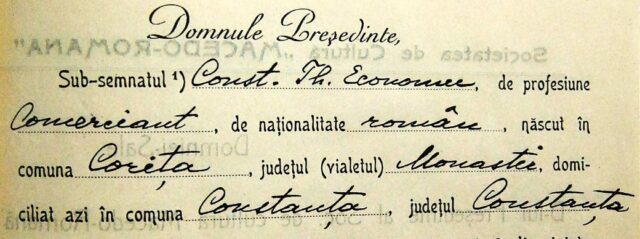 Domnule Președinte,
Sub-semnatul ¹) Const. Th. Economu, de profesiune
Comerciant, de naționalitate român, născut în
comuna Corița, județul (vialetul) Monastir, domi-
ciliat azi în comuna Constanța, județul Constanța